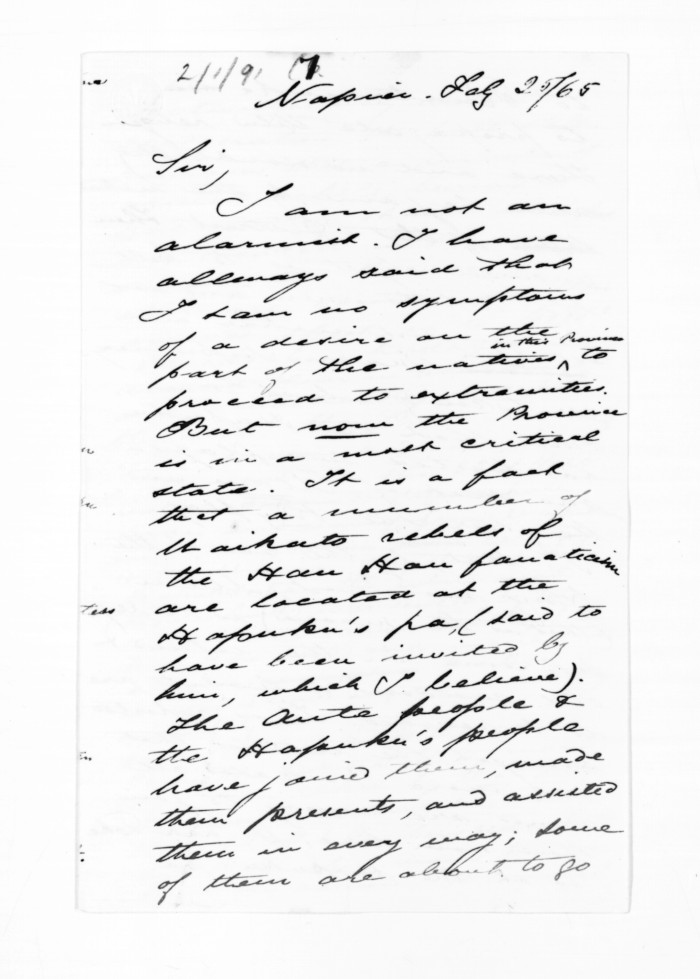 2/1/91
Napier. Feby 25/65
Sir,
I am not an
alarmist. I have
allways said that
I saw no symptoms
of a desire on the
part of the natives in this Province to
proceed to extremities.
But now the Province
is in a most critical
state. It is a fact
that a number of
Waikato rebels of
the Hau Hau fanaticism
are located at the
Hapuku's pa, (said to
have been invited by
him, which I believe).
The Aute people &
the Hapuku's people
have joined them, made
them presents, and assisted
them in every way; some
of them are about to go